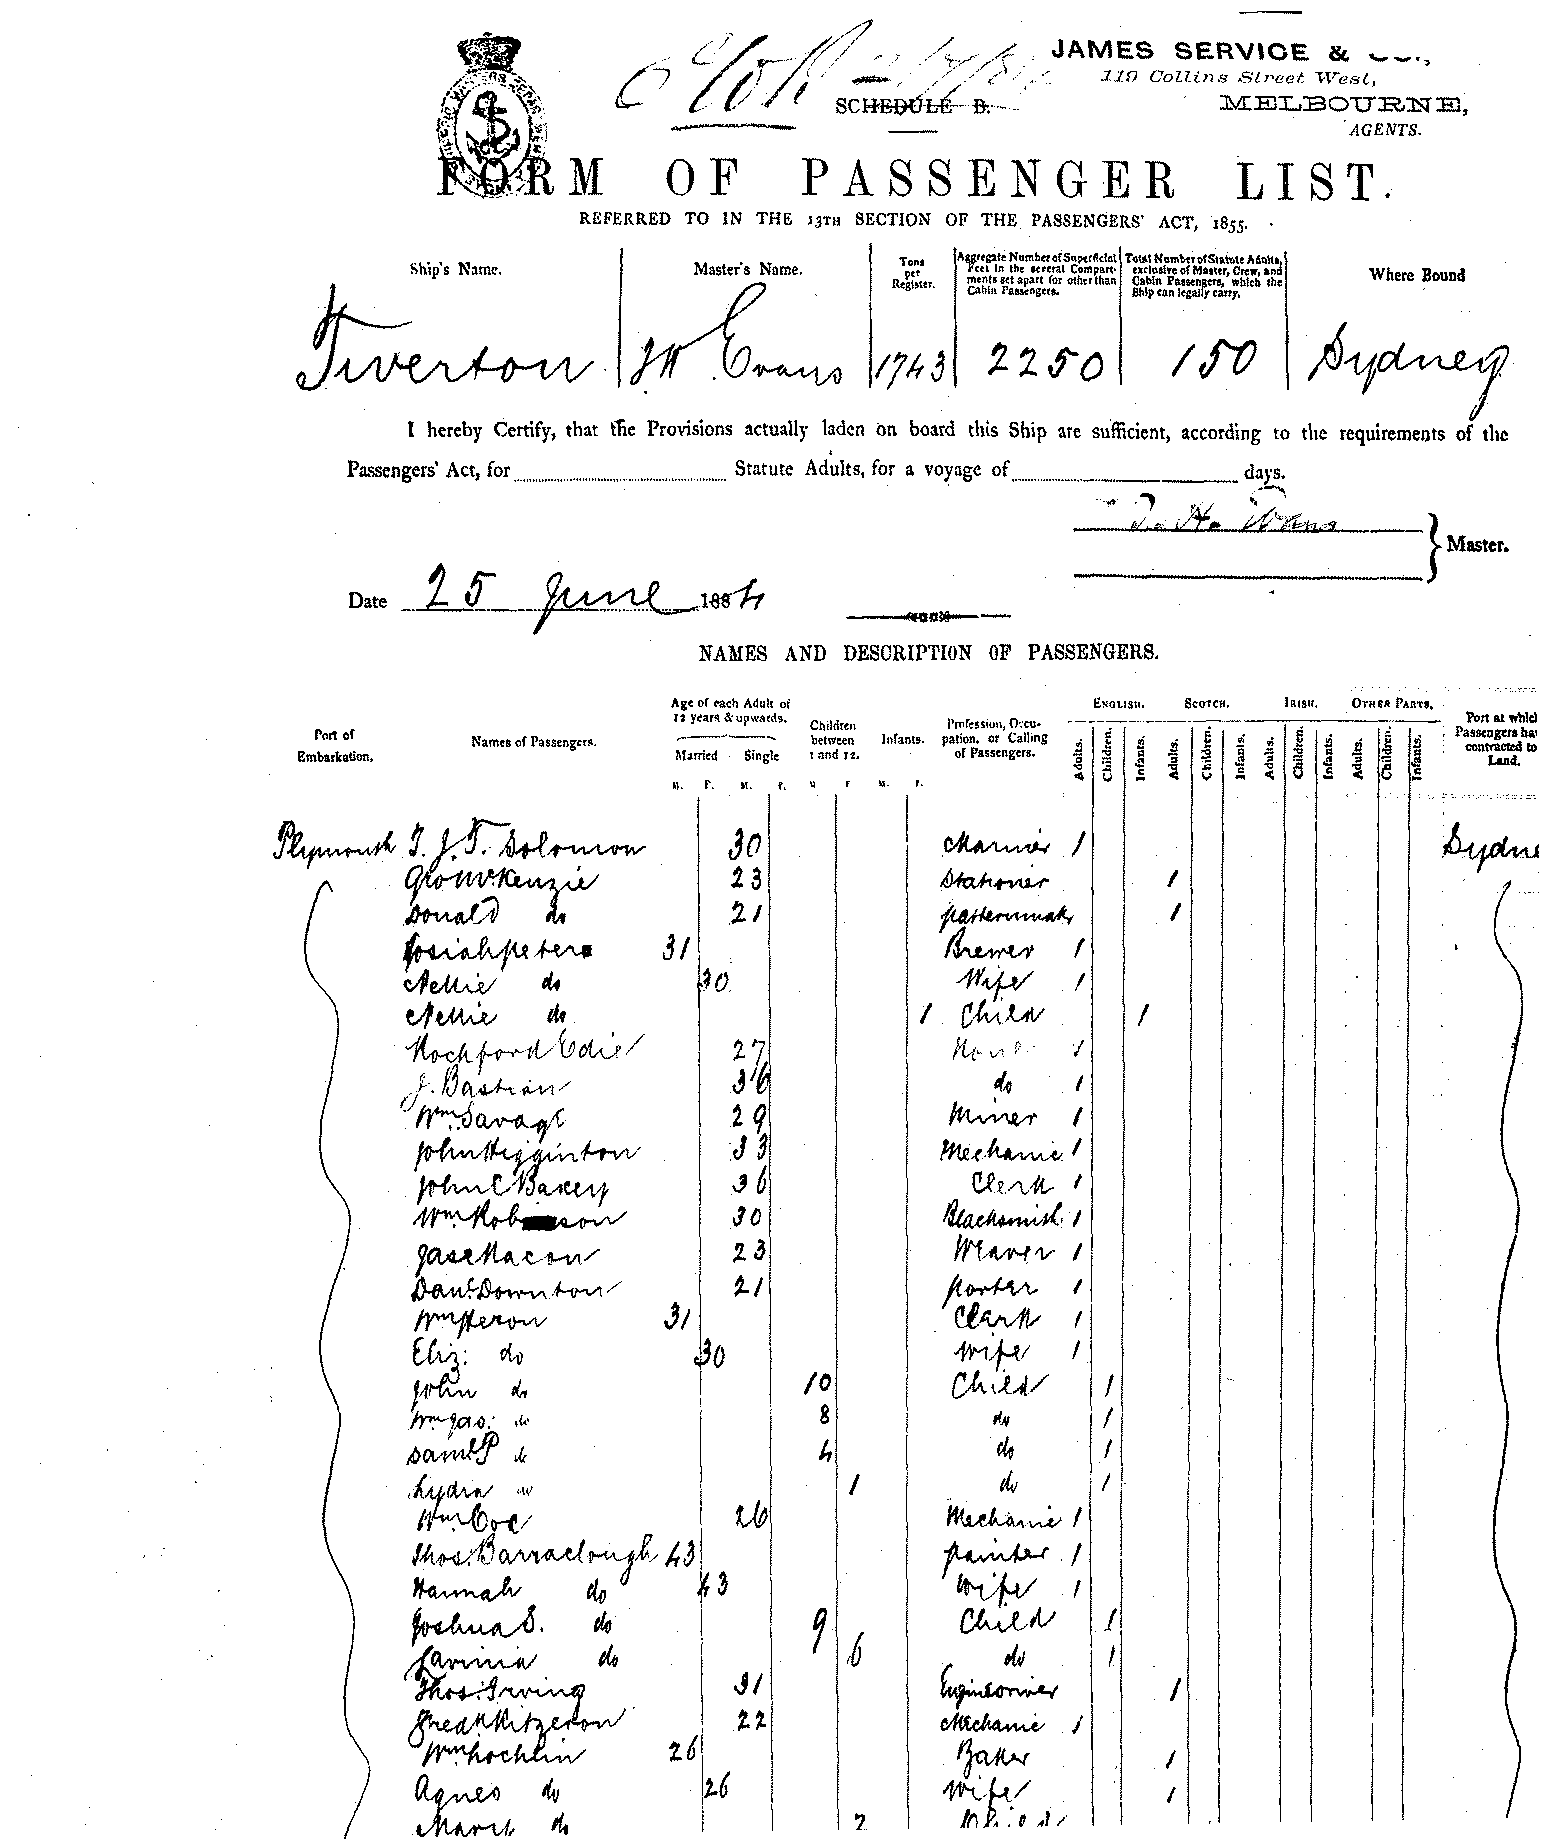 JAMES SERVICE &
119 Collins Street West,
MELBOURNE,
AGENTS.
SCHEDULE B.
FORM OF PASSENGER LIST.
REFERRED TO IN THE 13TH SECTION OF THE PASSENGERS' ACT, 1855.
Ship's Name. Master's Name. Tons per Register. Aggregate Number of Superficial Feet in the several Compartments set apart for other than Cabin Passengers. Total Number of Statute Adults, exclusive of Master, Crew, and Cabin Passengers, which the Ship can legally carry. Where Bound
Tiverton Evans 1743 2250 150 Sydney
I hereby Certify, that the Provisions actually laden on board this Ship are sufficient, according to the requirements of the
Passengers' Act, for Statute Adults, for a voyage of days.
Evans
Master.
Date 25 June 1884
NAMES AND DESCRIPTION OF PASSENGERS.
Port of Embarkation. Names of Passengers. Age of each Adult of 12 years & upwards. Married Single Children between 1 and 12. Infants. Profession, Occupation, or Calling of Passengers. ENGLISH. SCOTCH. IRISH. OTHER PARTS. Port at which Passengers have contracted to Land.
M. F. M. F. M F M. F. Adults. Children. Infants. Adults. Children. Infants. Adults. Children. Infants. Adults. Children. Infants.
Plymouth T. J. T. Solomon 30 Mariner 1 Sydne
Geo McKenzie 23 Stationer 1
Donald do 21 patternmakr 1
Josiah peters 31 Brewer 1
Nellie do 30 Wife 1
Nellie do 1 Child 1
Rochford Edie 27 None 1
J. Bastian 36 do 1
Wm Savage 29 Miner 1
John Higginton 33 Mechanic 1
John C Bakery 36 Clerk 1
Wm Robinson 30 Blacksmith 1
Jas Macon 23 Weaver 1
Danl Downton 21 porter 1
Wm Heron 31 Clerk 1
Eliz: do 30 Wife 1
John do 10 Child 1
Wm Jas: do 8 do 1
Saml P do 4 do 1
Lydia do 1 do 1
Wm Coe 26 Mechanic 1
Thos. Barraclough 43 painter 1
Hannah do 43 Wife 1
Joshua S. do 9 Child 1
Lavinia do 6 do 1
Thos. Irving 31 Enginedriver 1
Fredk Kitzeron 22 Mechanic 1
Wm Lochlin 26 Baker 1
Agnes do 26 Wife 1
do 2